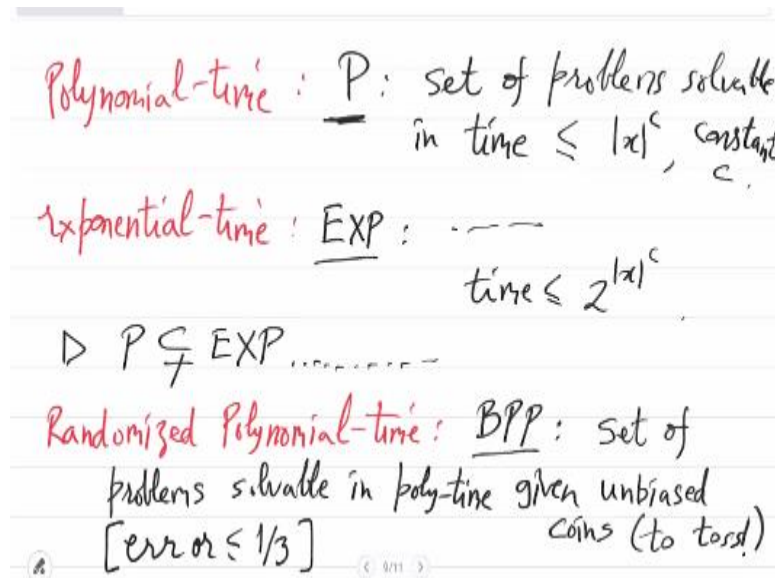 Polynomial-time : P : set of problems solvable
in time ≤ |x|^c, constant
c.
Exponential-time : EXP : ----
time ≤ 2^|x|^c
▷ P ⊊ EXP ..........
Randomized Polynomial-time : BPP : set of
problems solvable in poly-time given unbiased
coins (to toss!)
[error ≤ 1/3]
9/11